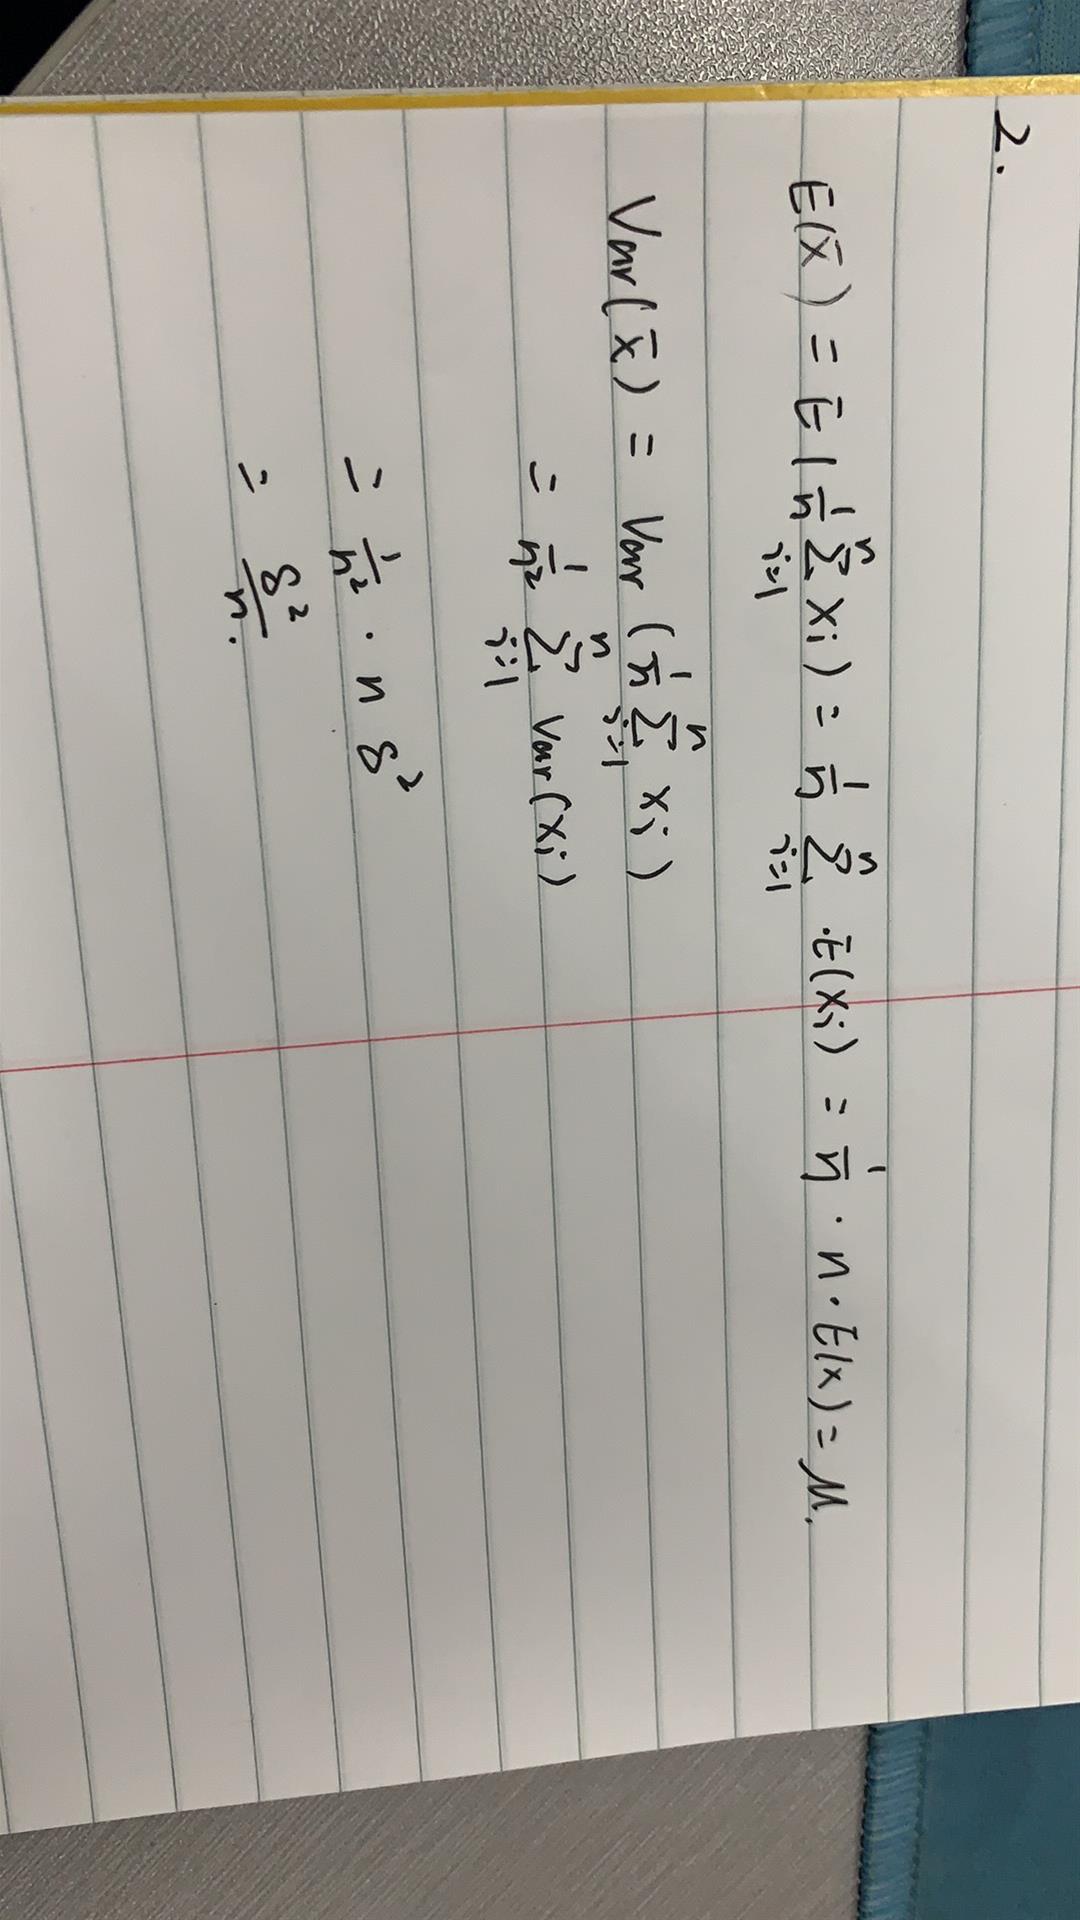 2.
E(x̄) = E(1/n Σ_{i=1}^{n} xi) = 1/n Σ_{i=1}^{n} E(xi) = 1/n · n · E(x) = μ.
Var(x̄) = Var (1/n Σ_{i=1}^{n} xi)
= 1/n² Σ_{i=1}^{n} Var(xi)
= 1/n² · n δ²
= δ²/n.